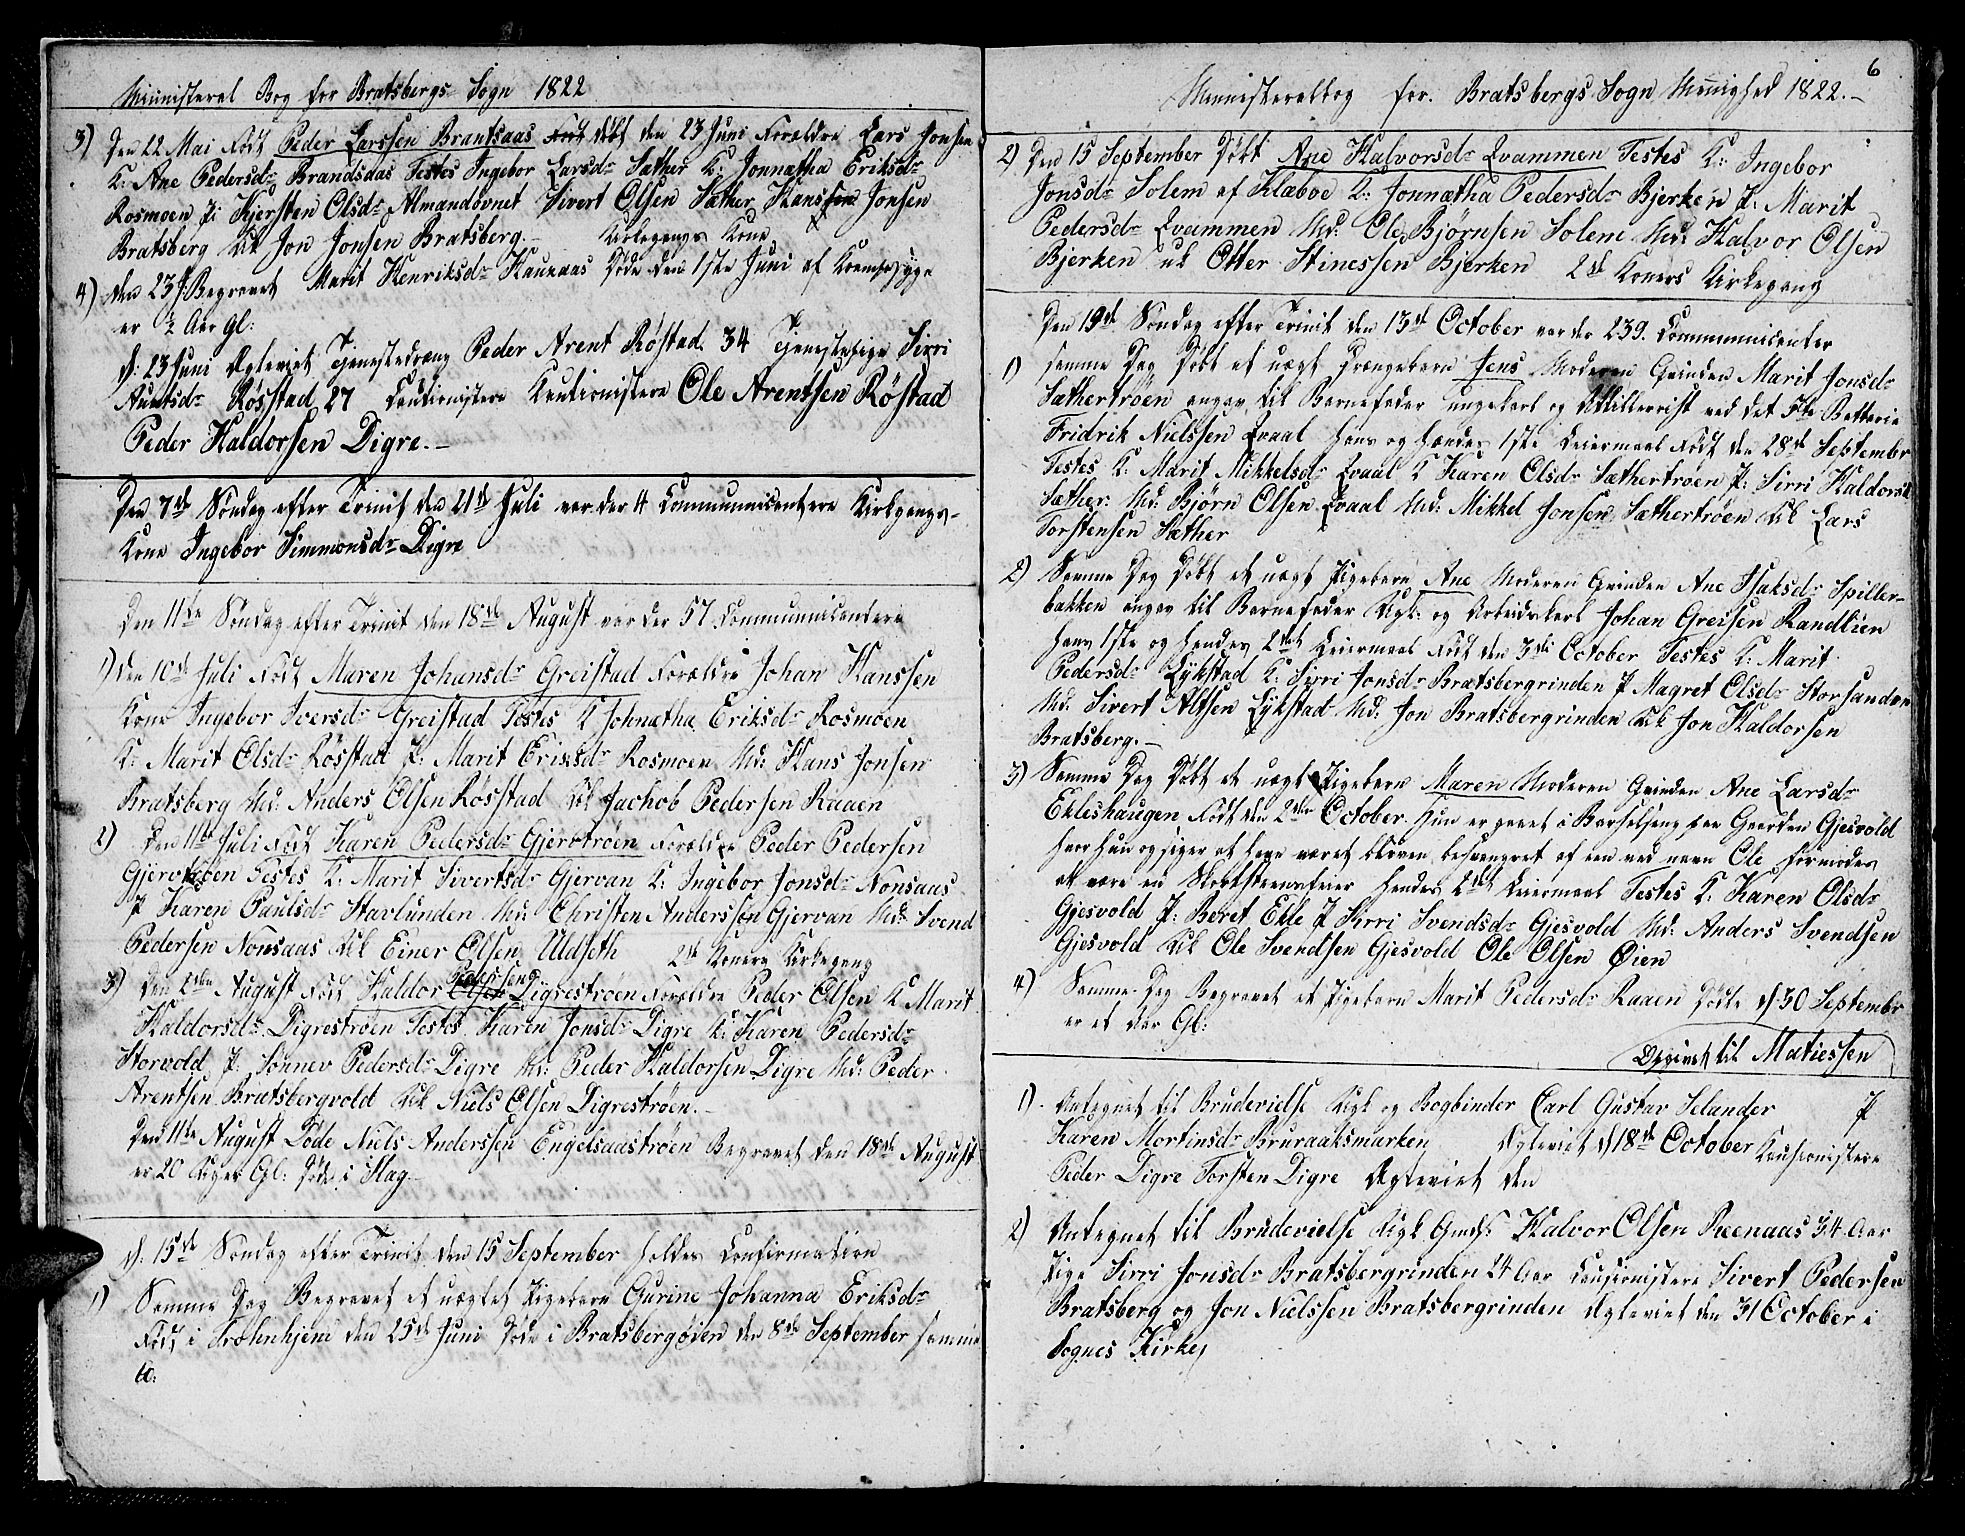 Ministeral Bog for Bratsbergs Sogn 1822
3) Den 22 Mai Født Peder Larssen Brantsaas Født døbt den 23 Juni Forældre Lars Jonsen
K: Ane Pedersdr Brandsaas Testes Ingebor Larsdr Sæther K: Jonnætha Eriksdr
Rosmoen P: Kjersten Olsdr Almandbvnet Sivert Olsen Sæther Hanssen Jonsen
Bratsberg Uk Jon Jonsen Bratsberg.- Kirkegangs Kone
4) den 23 J: Begravet Marit Henriksdr Haunaas Døde den 1ste Juni af Krampesyge
er ½ Aar Gl:
d: 23 Juni Egteviet Tjenestedreng Peder Arent Røstad 34 Tjenestepige Sirri
Auntsdr Røsstad 27 Cautionistere Kautionistere Ole Arentsen Røstad
Peder Haldorsen Digre.-
Den 7de Søndag efter Trinit den 21de Juli var der 4 Communicentere Kirkgangs-
Kone Ingebor Simmonsdr Digre
Den 11te Søndag efter Trinit den 18de August var der 57 Communicentere
1) Den 10de Juli Født Maren Johansdr Greistad Forældre Johan Hanssen
Kone Ingebor Iversdr Greistad Testes K Johnætha Eriksdr Rosmoen
K: Marit Olsdr Røsstad P: Marit Eriksdr Rosmoen Md: Hans Jonsen
Bratsberg Md: Anders Olsen Røsstad Uk Jachob Pedersen Raaen
2) Den 11te Juli Født Karen Pedersdr Gjervtrøen Forældre Peder Pedersen
Gjervtrøen Testes K: Marit Sivertsdr Gjervan K: Ingebor Jonsdr Nonsaas
P Karen Paulsdr Stavlunden Md: Christen Anderssen Gjervan Md: Svend
Pedersen Nonsaas Uk Einer Olsen Uldseth 2de Koners Kirkegang
3) Den 2den August Født Haldor Olsen Pedersen Digrestrøen Forældre Peder Olsen K Marit
Haldorsdr Digrestrøen Testes Karen Jonsdr Digre K: Karen Pedersdr
Storvold P: Sønnev Pedersdr Digre Md: Peder Haldorsen Digre Md: Peder
Arentsen Bratsbergvold Uk Niels Olsen Digrestrøen.-
Den 11te August Døde Niels Anderssen Engelsaastrøen Begravet den 18de August
er 20 Uger Gl: Døde i Slag
d: 15de Søndag efter Trinit den 15 September holdes Confirmation
1) Samme Dag Begravet et uægtet Pigebarn Gurine Johanna Eriksdr
Født i Trohnhjem den 25de Juni Døde i Bratsbergøien den 8de September samme
A:
6
Ministeralbog for Bratsbergs Sogn Menighed 1822.-
2) Den 15 September Døbt Ane Halvorsdr Qvammen Testes K: Ingebor
Jonsdr Solem af Klæboe K: Jonnætha Pedersdr Bjerken P: Marit
Pedersdr Qvammen Md: Ole Bjørnsen Solem Md: Halvor Olsen
Bjerken uk Otter Stinessen Bjerken 2de Koners Kirkegang
Den 19de Søndag efter Trinit den 13de October var der 239. Communicenter
1) Samme Dag Døbt et uægt Drængebarn Jens Moderen Qvinden Marit Jonsdr
Sæthertrøen angav til Barnefader ungekarl og Attillerist ved det 5te Batterie
Fridrik Nielssen Qvaal hans og hendes 1ste Leiermaal Født den 28de Septembr
Testes K: Marit Mikkelsdr Qvaal K Karen Olsdr Sæthertrøen P: Sirri Haldorsdr
Sæther Md: Bjørn Olsen Qvaal Md: Mikkel Jonsen Sæthertrøen Uk Lars
Torstensen Sæther
2) Samme Dag Døbt et uægt Pigebarn Ane Moderen Qvinden Ane Isaksdr Spiller-
bakken angav til Barnefader Ugk: og Arbeidskarl Johan Greisen Randlien
hans 1ste og hendes 2det Leiermaal Født den 3die October Testes K: Marit
Pedersdr Lykstad K: Sirri Jonsdr Bratsbergrinden P Magret Olsdr Storsanden
Md: Sivert Altsen Lykstad Md: Jon Bratsbergrinden Uk Jon Haldorsen
Bratsberg.-
3) Samme Dag Døbt et uægt Pigebarn Maren Moderen Qvinden Ane Larsdr
Ekleshaugen Født den 2den October hun er paa i Barselseng paa Gaarden Gjesvold
hvor hun og siger at have været bleven besvangret af en ved navn Ole formodes
at være en Skorsteensfeier hendes 2det Leiermaal Testes K: Karen Olsdr
Gjesvold P: Beret Ekle P Sirri Svendsdr Gjesvold Md: Anders Svendsen
Gjesvold Uk Ole Svendsen Gjesvold Ole Olsen Øien
4) Samme Dag Begravet et Pigebarn Marit Pedersdr Raaen Døde d 30 Septembr
er et Aar Gl:
Opgivet til Matiessen
1) Antegnet til Brudevielse Ugk og Bogbinder Carl Gustav Selander P
Karen Mortinsdr Bruraaksmarken Egteviet d 18de October Kautionistere
Peder Digre Torsten Digre Egteviet den
2) Antegnet til Brudevielse Ugk Gmds Halvor Olsen Reenaas 34 Aar
Pige Sirri Jonsdr Bratsbergrinden 24 Aar Causionistere Sivert Pedersen
Bratsberg og Jon Nielssen Bratsbergrinden Egteviet den 31 October i
Sognes Kirke